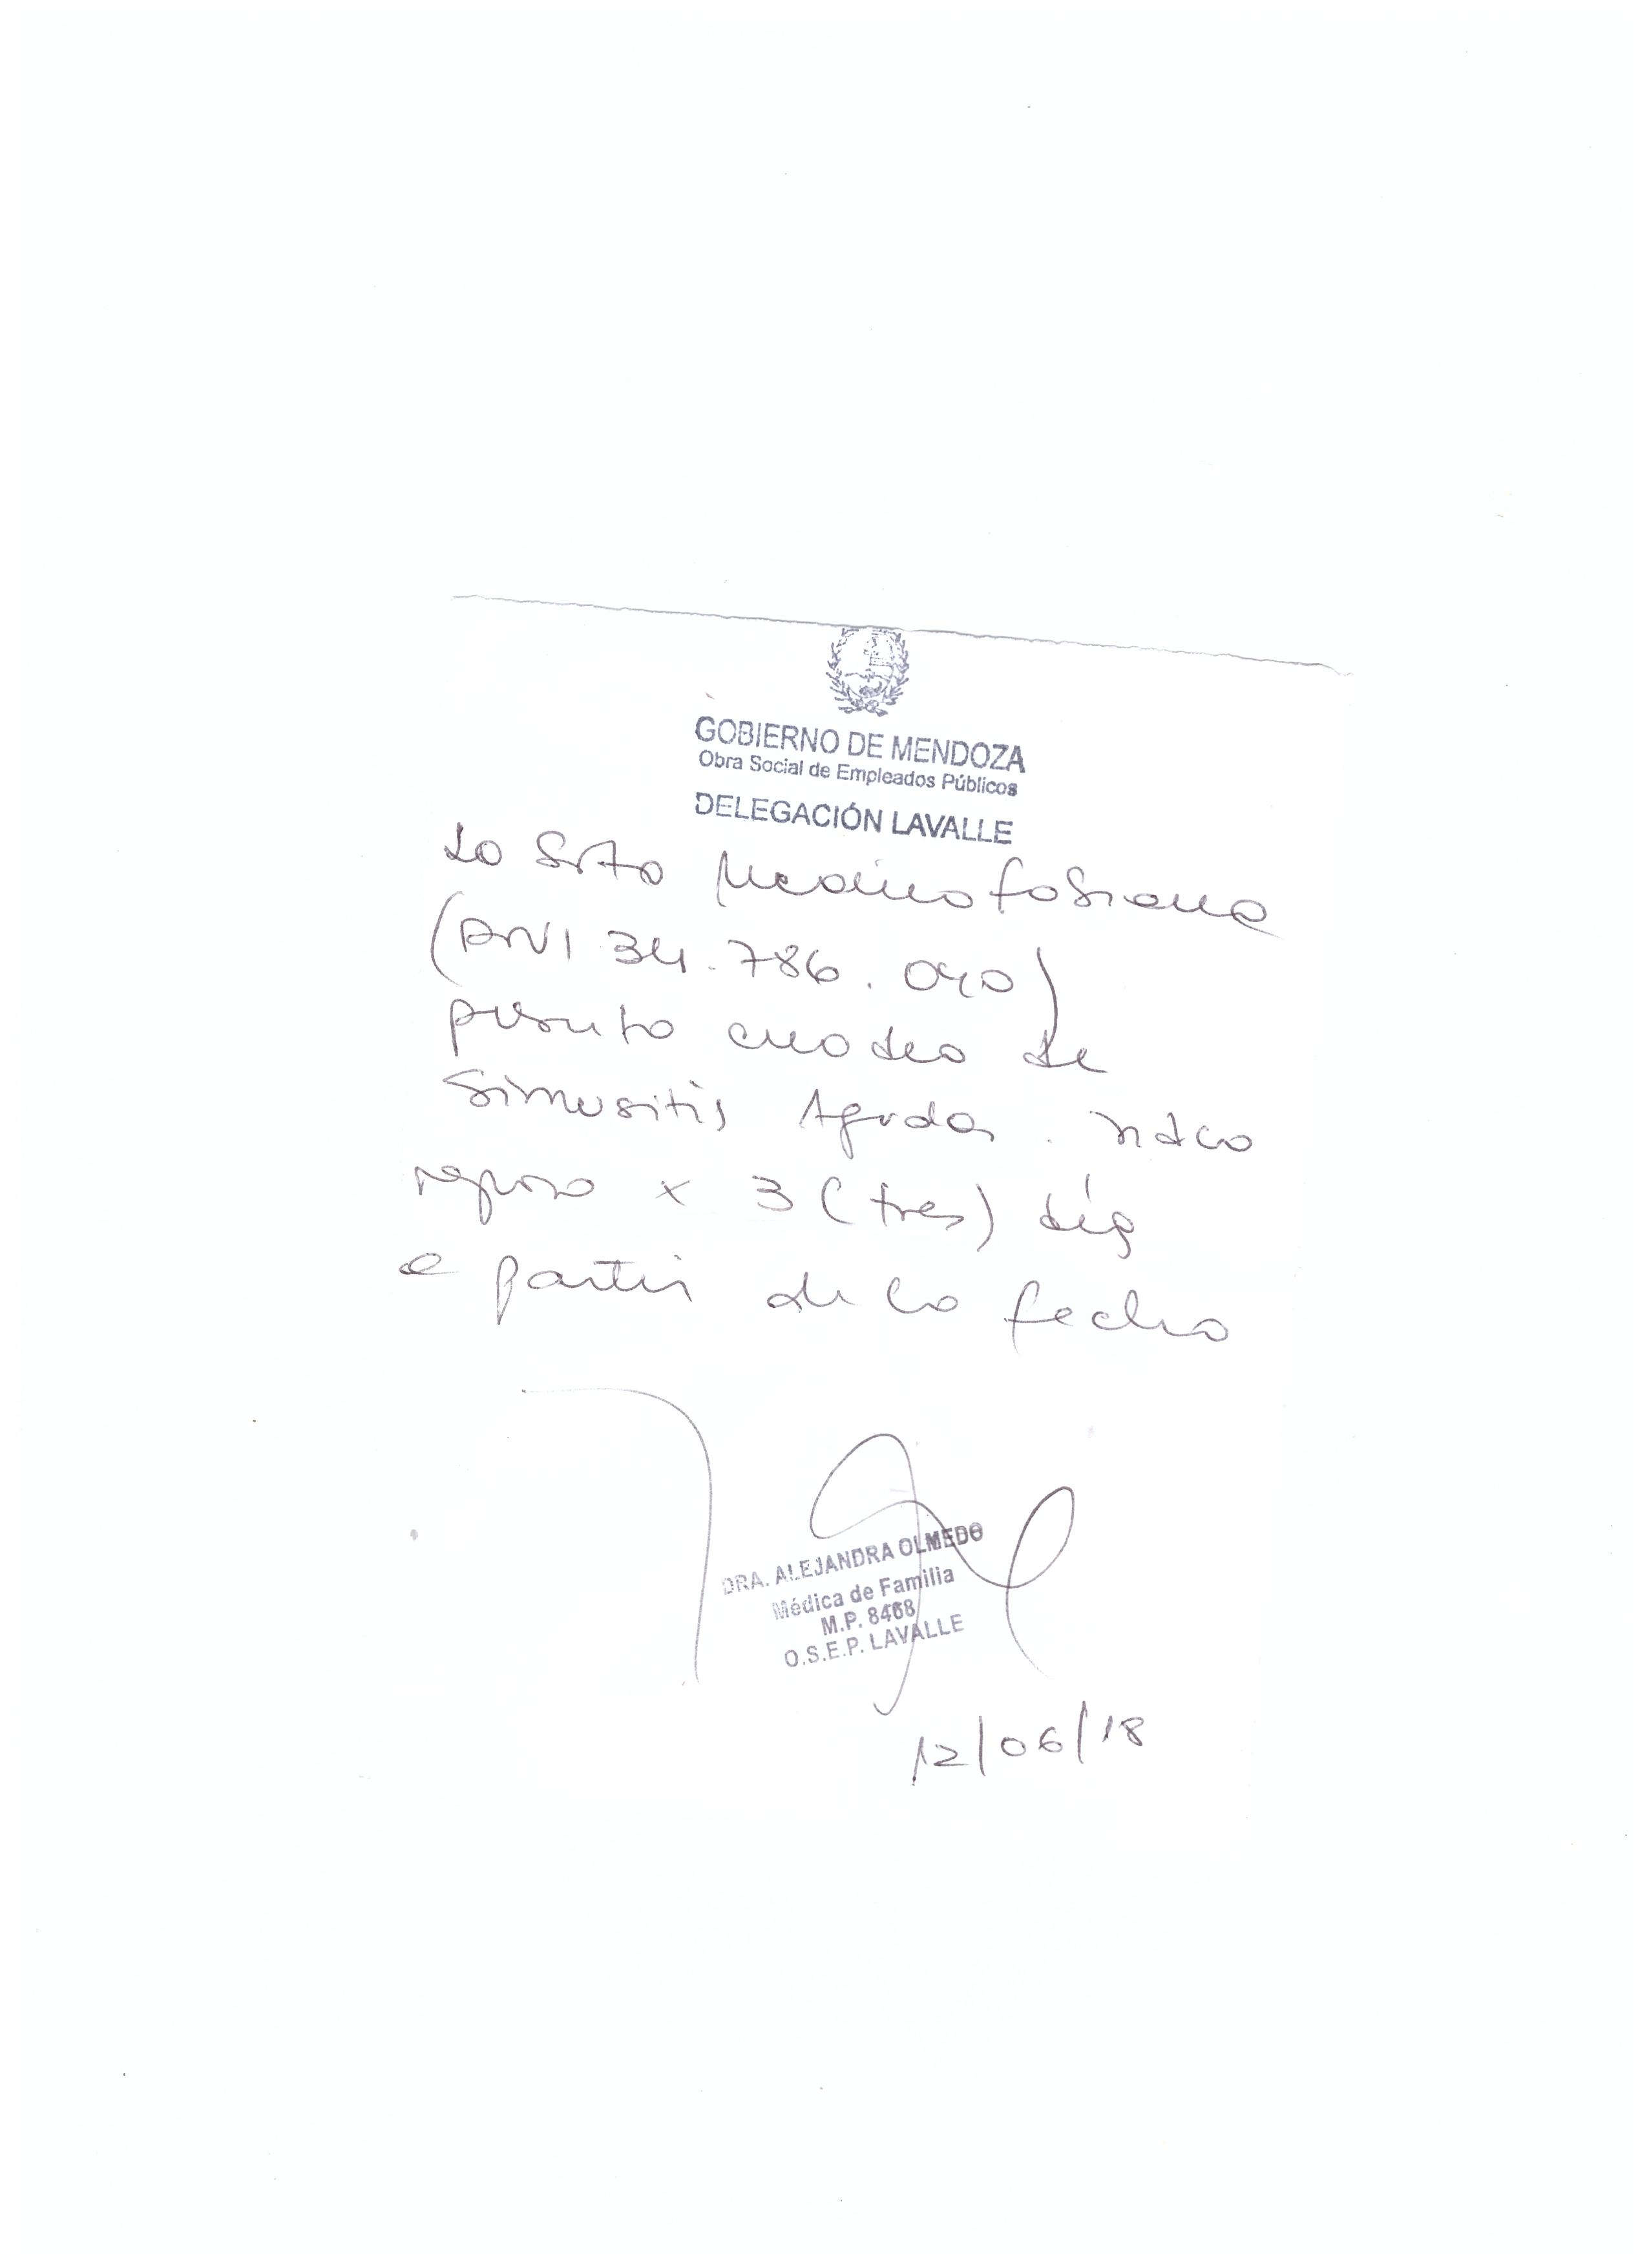 GOBIERNO DE MENDOZA
Obra Social de Empleados Públicos
DELEGACIÓN LAVALLE
La Srta Medina Fabiana
(DNI 34.786.040)
presenta cuadro de
Sinusitis Aguda. Indico
reposo x 3 (tres) días
a partir de la fecha
DRA. ALEJANDRA OLMEDO
Médica de Familia
M.P. 8468
O.S.E.P. LAVALLE
12/06/18